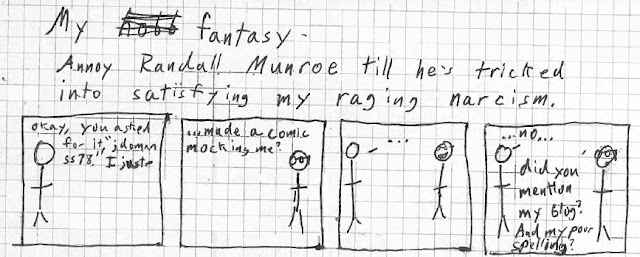 My fantasy -
Annoy Randall Munroe till he's tricked
into satisfying my raging narcism.
okay, you asked
for it "jdoman
ss78," I just
...made a comic
mocking me?
...
...no...
did you
mention
my blog?
And my pour
spelling?